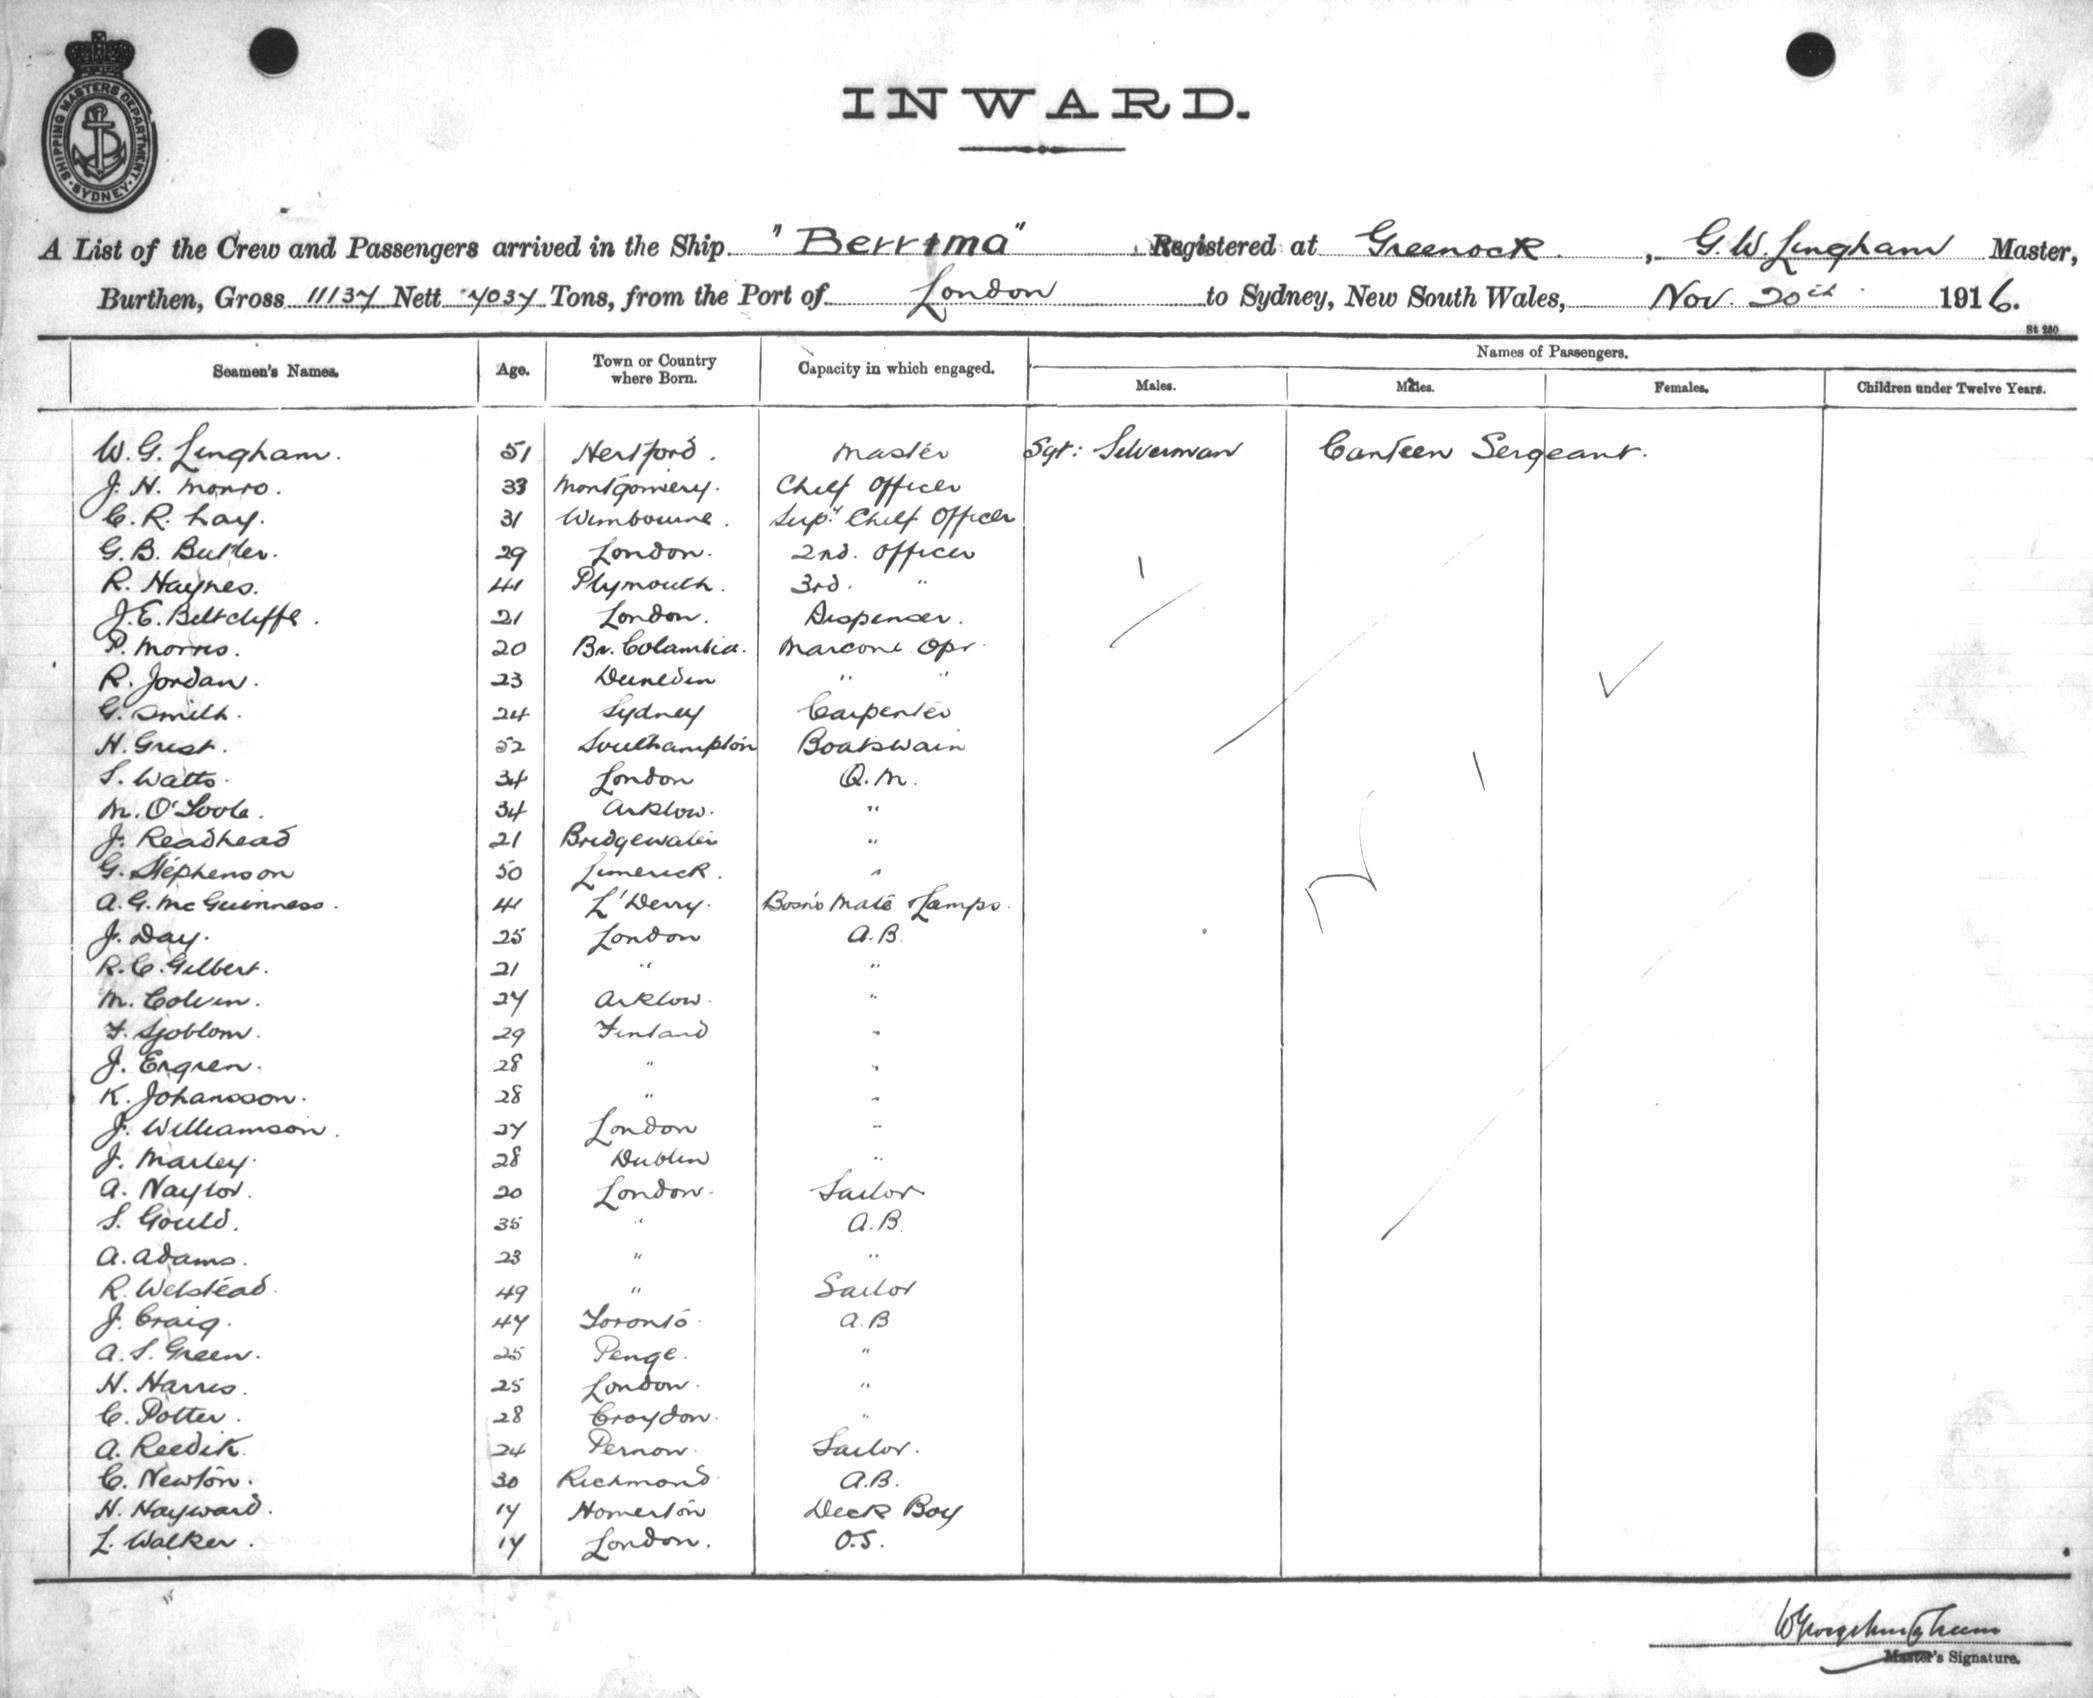 SHIPPING MASTERS DEPARTMENT. SYDNEY.
INWARD.
A List of the Crew and Passengers arrived in the Ship "Berrima" Registered at Greenock, G. W. Lingham Master,
Burthen, Gross 11137 Nett 7037 Tons, from the Port of London to Sydney, New South Wales, Nov. 20th 1916.
St 280
Seamen's Names. Age. Town or Country where Born. Capacity in which engaged. Names of Passengers.
Males. Males. Females. Children under Twelve Years.
W. G. Lingham. 51 Hertford. Master Sgt: Silverman Canteen Sergeant.
J. H. Monro. 33 Montgomery. Chief Officer
C. R. Lay. 31 Wimbourne. Sup.y Chief Officer
G. B. Butler. 29 London. 2nd. Officer
R. Haynes. 41 Plymouth. 3rd. "
J. E. Beltcliffe. 21 London. Dispenser.
P. Morris. 20 Br. Colambia. Marconi Opr.
R. Jordan. 23 Dunedin " "
G. Smith. 24 Sydney Carpenter
H. Grist. 52 Southampton Boatswain
S. Watts. 34 London Q.M.
M. O'Toole. 34 Arklow. "
J. Readhead 21 Bridgewater "
G. Stephenson 50 Limerick. "
A. G. McGuinness. 41 L'Derry. Bosn's Mate & Lamps.
J. Day. 25 London A.B.
R. C. Gilbert. 21 " "
M. Colvin. 27 Arklow. "
F. Sjoblom. 29 Finland "
J. Ergren. 28 " "
K. Johansson. 28 " "
J. Williamson. 27 London "
J. Marley. 28 Dublin "
A. Naylor. 20 London. Sailor
S. Gould. 35 " A.B.
A. Adams. 23 " "
R. Welstead. 49 " Sailor
J. Craig. 47 Toronto. A.B
A. S. Green. 25 Penge. "
H. Harris. 25 London. "
C. Potter. 28 Croydon. "
A. Reedik. 24 Pernow. Sailor.
C. Newton. 30 Richmond. A.B.
H. Hayward. 17 Homerton Deck Boy
L. Walker. 17 London. O.S.
Master's Signature.